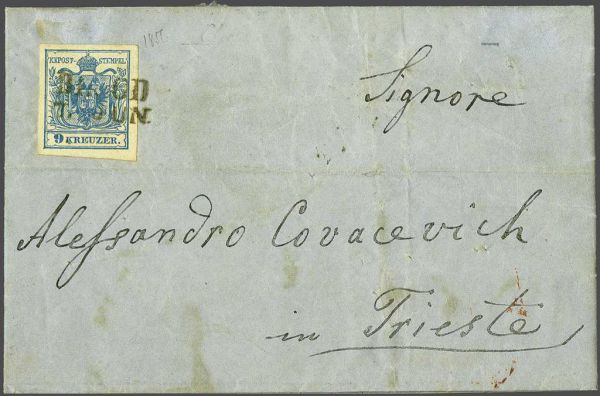 1855
KKPOST-STEMPEL
9 KREUZER.
Signore
Alessandro Covacevich
in Trieste